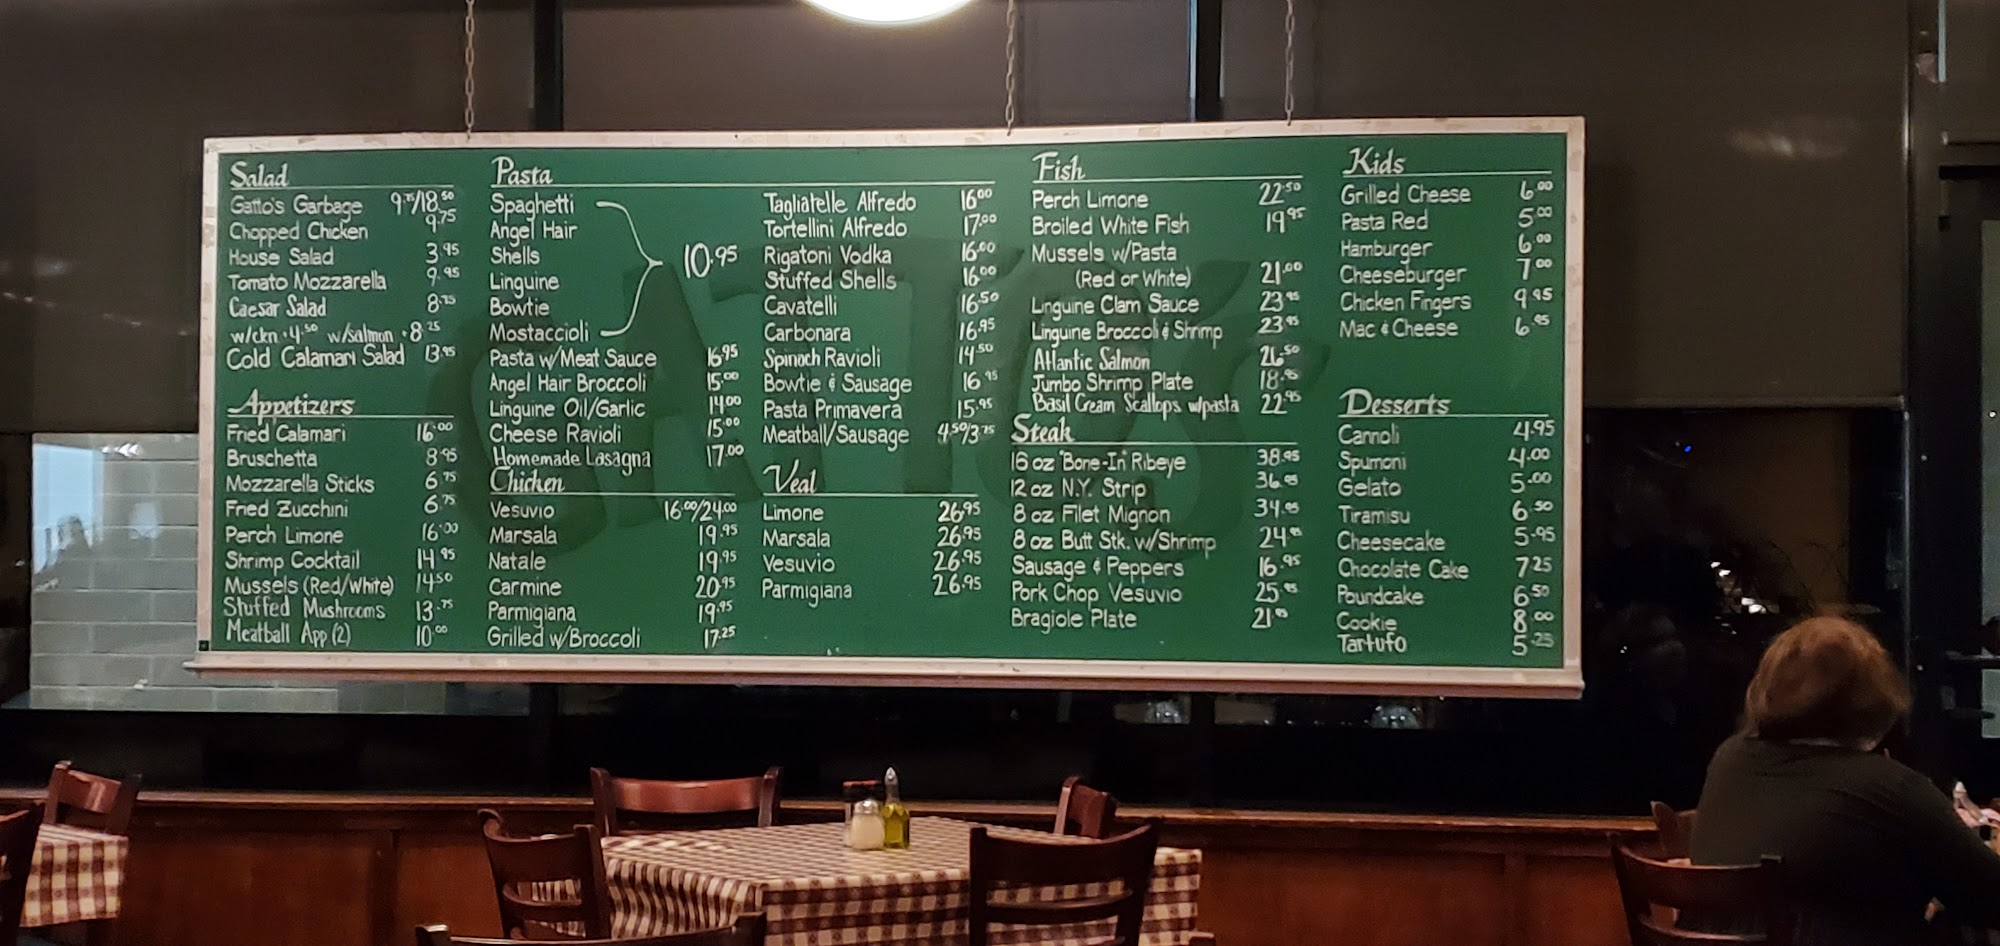 Salad
Gatto's Garbage 9.75/18.50
Chopped Chicken 9.75
House Salad 3.95
Tomato Mozzarella 9.95
Caesar Salad 8.75
w/ckn +4.50 w/salmon +8.25
Cold Calamari Salad 13.95
Appetizers
Fried Calamari 16.00
Bruschetta 8.95
Mozzarella Sticks 6.75
Fried Zucchini 6.75
Perch Limone 16.00
Shrimp Cocktail 14.95
Mussels (Red/White) 14.50
Stuffed Mushrooms 13.75
Meatball App (2) 10.00
Pasta
Spaghetti
Angel Hair
Shells 10.95
Linguine
Bowtie
Mostaccioli
Pasta w/Meat Sauce 16.95
Angel Hair Broccoli 15.00
Linguine Oil/Garlic 14.00
Cheese Ravioli 15.00
Homemade Lasagna 17.00
Chicken
Vesuvio 16.00/24.00
Marsala 19.95
Natale 19.95
Carmine 20.95
Parmigiana 19.95
Grilled w/Broccoli 17.25
Tagliatelle Alfredo 16.00
Tortellini Alfredo 17.00
Rigatoni Vodka 16.00
Stuffed Shells 16.00
Cavatelli 16.50
Carbonara 16.95
Spinach Ravioli 14.50
Bowtie & Sausage 16.95
Pasta Primavera 15.95
Meatball/Sausage 4.50/3.75
Veal
Limone 26.95
Marsala 26.95
Vesuvio 26.95
Parmigiana 26.95
Fish
Perch Limone 22.50
Broiled White Fish 19.95
Mussels w/Pasta
(Red or White) 21.00
Linguine Clam Sauce 23.95
Linguine Broccoli & Shrimp 23.95
Atlantic Salmon 26.50
Jumbo Shrimp Plate 18.95
Basil Cream Scallops w/pasta 22.95
Steak
16 oz "Bone-In" Ribeye 38.95
12 oz N.Y. Strip 36.95
8 oz Filet Mignon 34.95
8 oz Butt Stk. w/Shrimp 24.95
Sausage & Peppers 16.95
Pork Chop Vesuvio 25.95
Bragiole Plate 21.95
Kids
Grilled Cheese 6.00
Pasta Red 5.00
Hamburger 6.00
Cheeseburger 7.00
Chicken Fingers 9.95
Mac & Cheese 6.95
Desserts
Cannoli 4.95
Spumoni 4.00
Gelato 5.00
Tiramisu 6.50
Cheesecake 5.95
Chocolate Cake 7.25
Poundcake 6.50
Cookie 8.00
Tartufo 5.25
GATTO'S